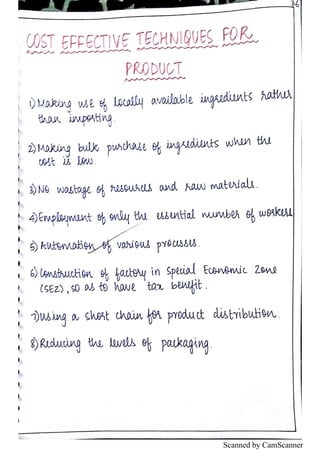 COST EFFECTIVE TECHNIQUES FOR
PRODUCT
1) Making use of locally available ingredients rather
than importing.
2) Making bulk purchase of ingredients when the
cost is low.
3) No wastage of resources and raw materials.
4) Employment of only the essential number of workers
5) Automation of various processes.
6) Construction of factory in Special Economic Zone
(SEZ), so as to have tax benefit.
7) Using a short chain for product distribution.
8) Reducing the levels of packaging.
Scanned by CamScanner